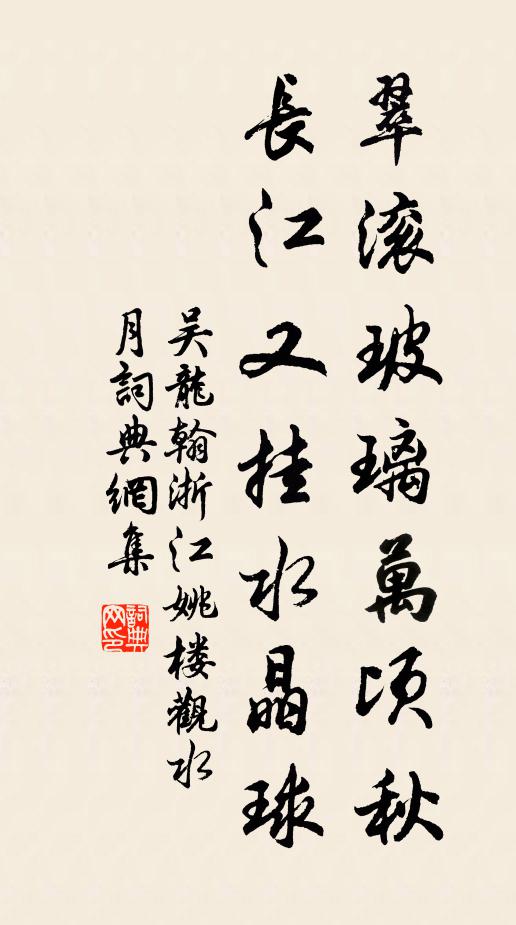 翠滚玻璃萬頃秋
長江又挂水晶球
吴龍翰浙江姚楼觀水
月詞典網集
詞典網印